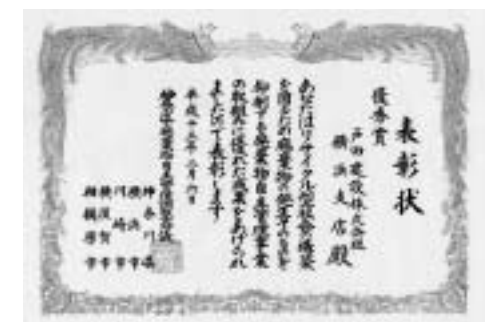 表彰状
優秀賞
戸田建設株式会社
横浜支店殿
あなたはリサイクル型社会の構築
を図るため廃棄物の発生そのものを
抑制する廃棄物自主管理事業
の取組に優れた成果をあげられ
ましたので表彰します
平成十三年二月六日
神奈川県
横浜市
川崎市
横須賀市
相模原市